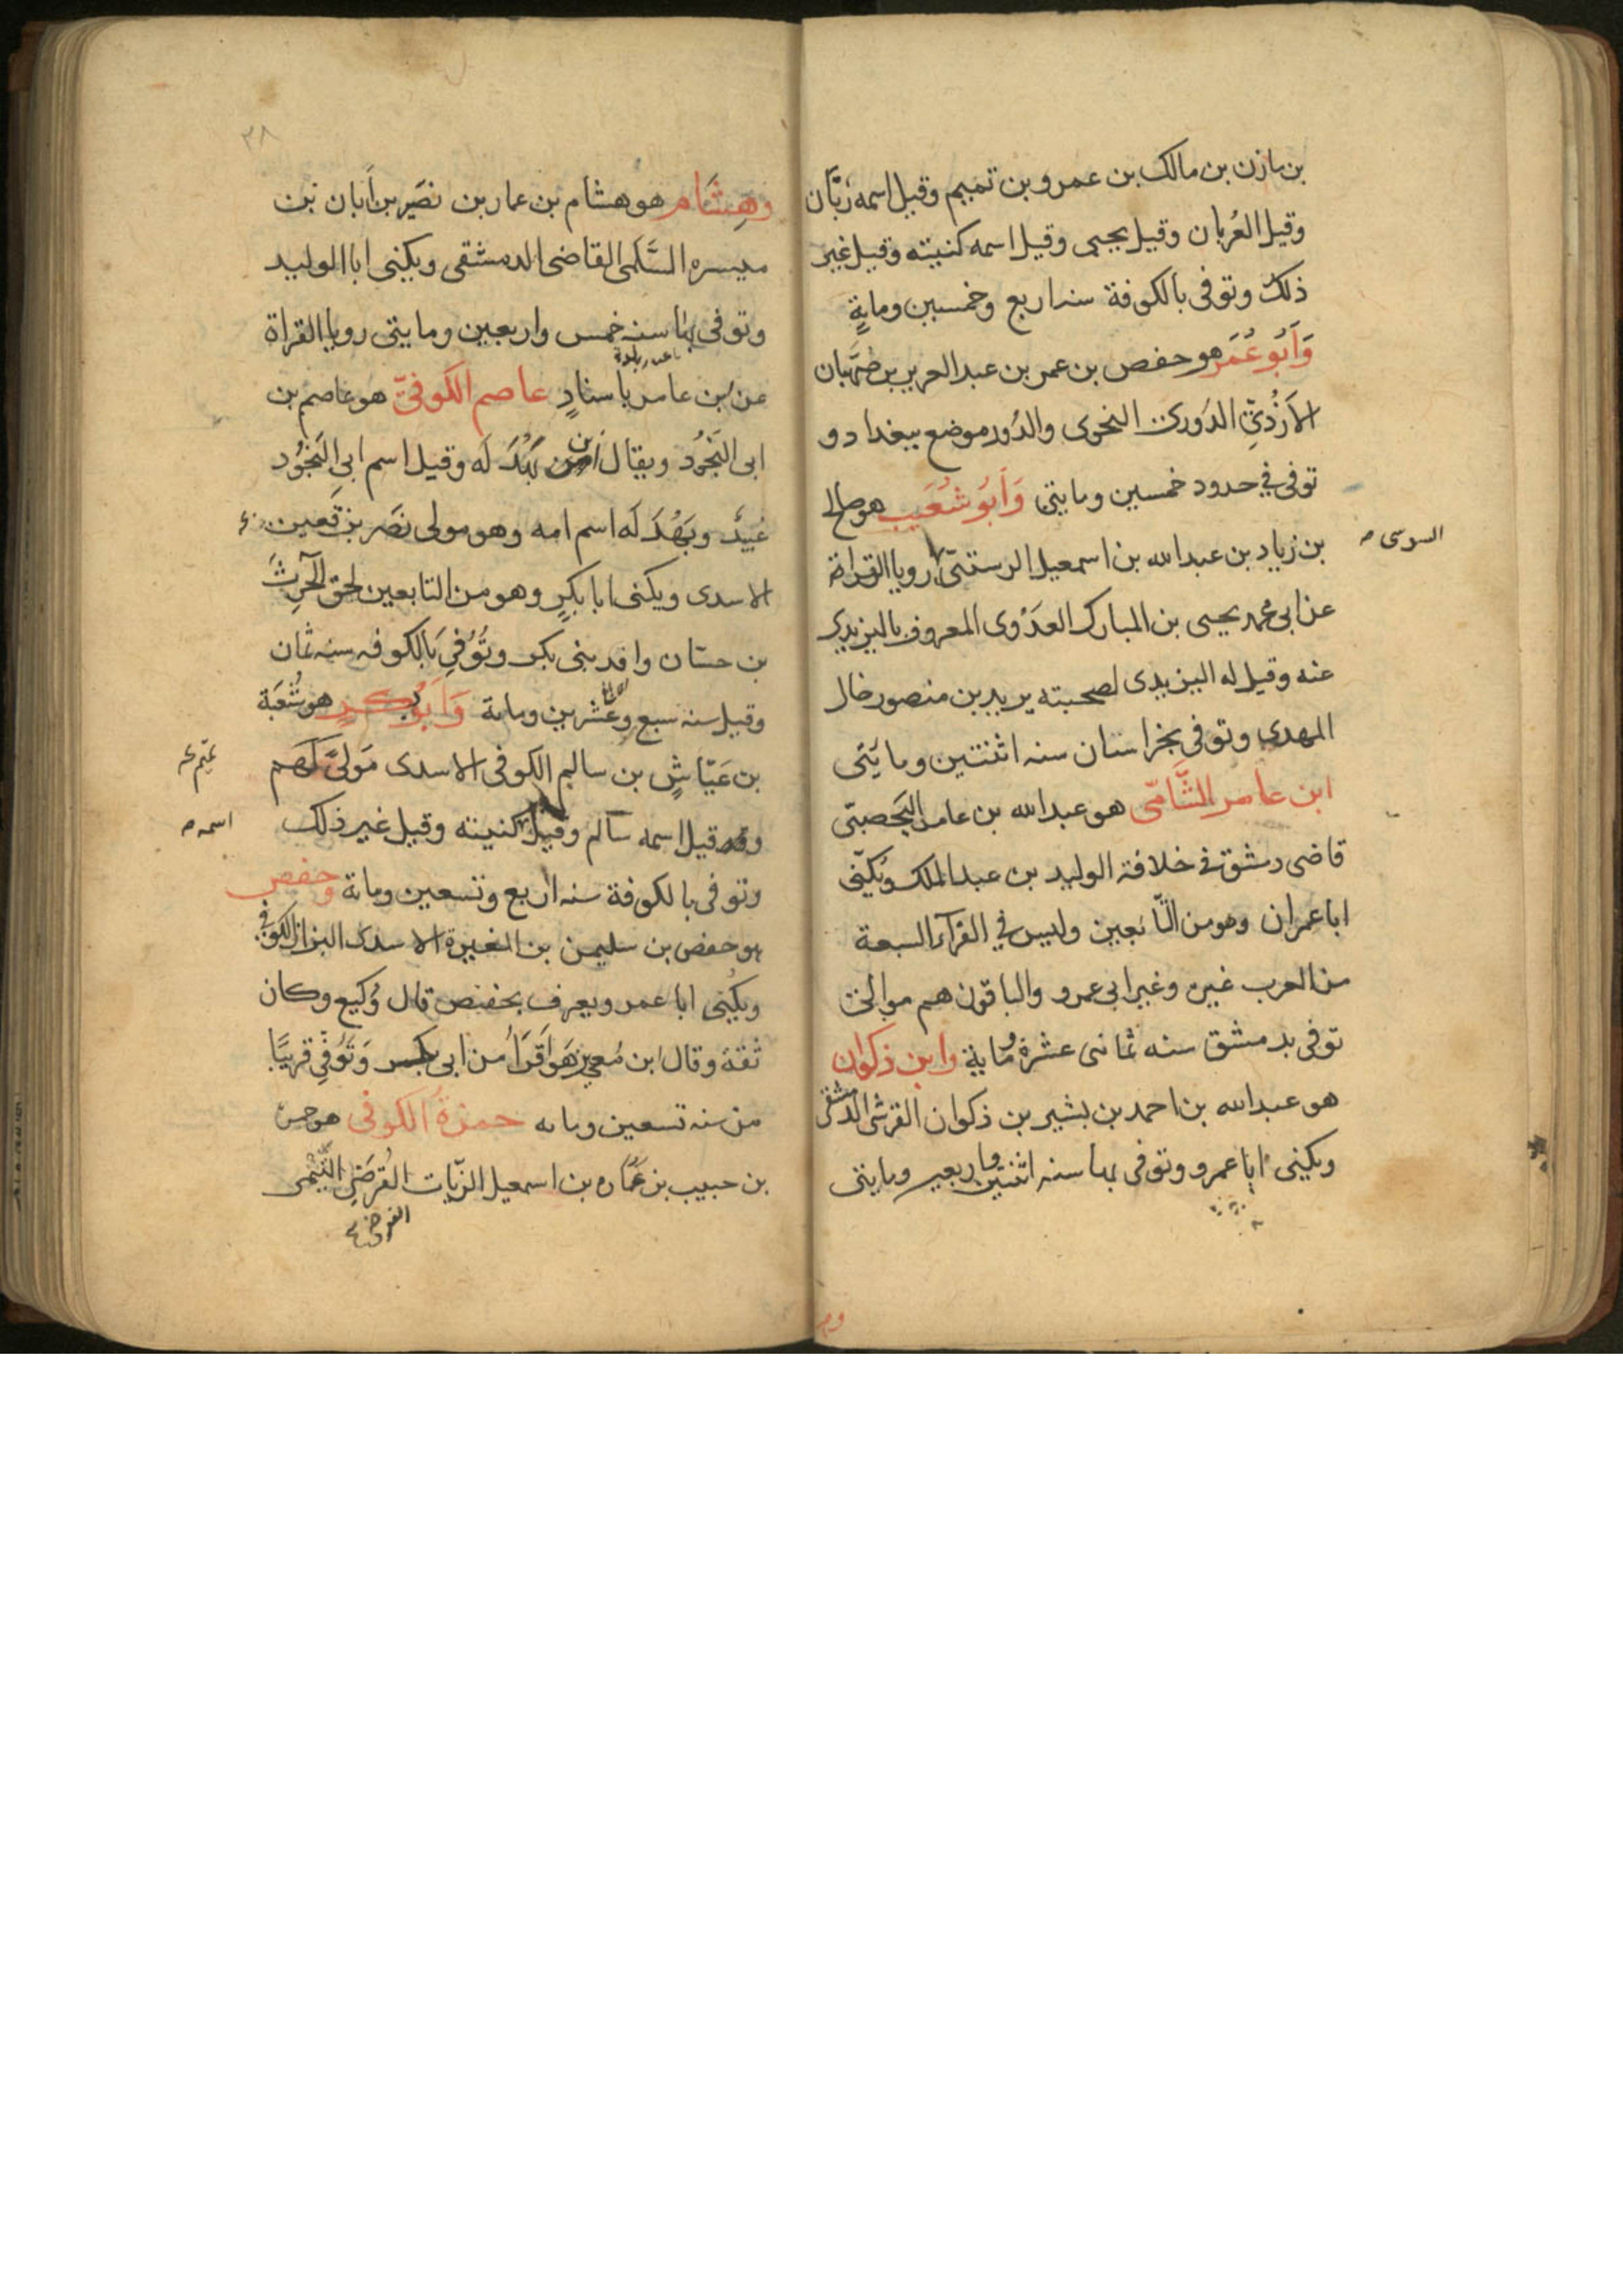 بن مازن بن مالك بن عمرو بن تميم وقيل اسمه زبّان
وقيل العُريان وقيل يحيى وقيل اسمه كنيته وقيل غير
ذلك وتوفى بالكوفة سنه اربع وخمسين وماية
وَاَبُو عُمَر هو حفص بن عمر بن عبد العزيز بن صهبان
الاَزْدِىّ الدُورى النحوى والدُور موضع ببغداد و
توفى في حدود خمسين ومايتى وَاَبُو شُعَيب هو صالح
بن زياد بن عبد الله بن اسمعيل الرستبىّ رويا القراة
السوسى صح
عن ابى محمد يحيى بن المبارك العَدَوى المعروف باليزيدى
عنه وقيل له اليزيدى لصحبته يزيد بن منصور خال
المهدى وتوفى بخراسان سنه اثنتين ومايَتى
ابن عامر الشَّامّى هو عبد الله بن عامر اليَحصبّى
قاضى دمشق فى خلافة الوليد بن عبد الملك ويُكنّى
ابا عمران وهو من التّابعين وليس في القرآء السبعة
من العرب غيره وغير ابى عمرو والباقون هم موالى
توفى بدمشق سنه ثمانى عشرة وماية وابن ذكوان
هو عبد الله بن احمد بن بشير بن ذكوان القرشى الدمشقى
ويكنى ابا عمرو وتوفى بها سنه اثنتين واربعين ومايتى
وم
٣٨
وهِشَام هو هشام بن عمار بن نصَير بن اَبان بن
ميسره السَّلمى القاضى الدمشقى ويكنى ابا الوليد
وتوفى بها سنه خمس واربعين ومايتى رويا القراة
عن ابن عامر باسنادٍ عاصم الكوفىّ هو عاصم بن
ابى النَجُود ويقال ابن بَهْدَ لَه وقيل اسم ابى النَجُود
عُبيدٌ وبَهْدَ لَه اسم امه وهو مولى نصَر بن قعين
الاسدى ويكنى ابا بكرٍ وهو من التابعين لحق الحٰرثَ
بن حسّان وافد بنى بكر وتُوُفِىَ بالكوفه سنه ثمان
وقيل سنه سبع وعشرين وماية وَاَبُو بَكرٍ هو شُعْبَة
بن عَيّاشٍ بن سالم الكوفى الاسدى مَولىً لَهم
وقد قيل اسمه سالم وقيل كنيته وقيل غير ذلك
اسمه صح
وتوفى بالكوفة سنه اربع وتسعين وماية وحفص
هو حفص بن سليمن بن المغيرة الاسدى البزاز الكوفى
ويكنى ابا عمر ويعرف بحفيص قال وُكيع وكان
ثقةً وقال ابن مُعين هَو اَقَرَأُ من ابى بكر وَتَوُفِّى قريبًا
من سنه تسعين ومايه حمزةُ الكوفى هو حمزة
بن حبيب بن عُمَاره بن اسمعيل الزّيات الفُرضى التَّيْمى
الفرضى